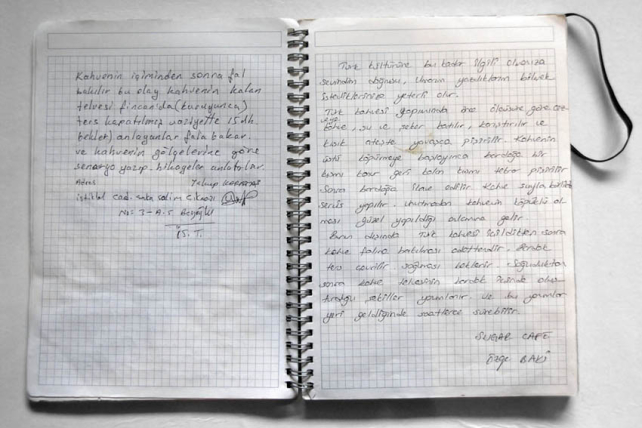 Kahvenin içiminden sonra fal
bakılır bu olay kahvenin kalan
telvesi fincanda (kuruyunca)
ters kapatılmış vaziyette 15 dk.
beklet) anlayanlar fala bakar.
ve kahvenin gölgelerine göre
senaryo yazıp hikayeler anlatırlar.
Adres Yakup
istiklal cad.
No: 3-A.
İS. T.
Türk kültürüne bu kadar ilgili olmanıza
sevindim doğrusu, Umarım yazdıklarım bilmek
istediklerinize yeterli olur.
Türk kahvesi yapımında önce ölçüsüne göre
kahve, su ve şeker katılır, karıştırılır ve
kısık ateşte yavaşça pişirilir. Kahvenin
üstü köpürmeye başlayınca bardağa bir
kısmı geri kalan kısmı tekrar pişirilir
Sonra bardağa ilave edilir. Kahve suyla birlikte
servis yapılır. Unutmadan kahvenin köpüklü ol-
ması güzel yapıldığı anlamına gelir.
Bunun dışında Türk kahvesi içildikten sonra
kahve falına bakılması adettendir. Bardak
ters çevrilir soğuması beklenir. Soğuduktan
sonra kahve telvesinin bardak içinde oluş-
turduğu şekiller yorumlanır. Ve bu yorumlar
yeri geldiğinde saatlerce sürebilir.
SUGAR CAFE
Özge